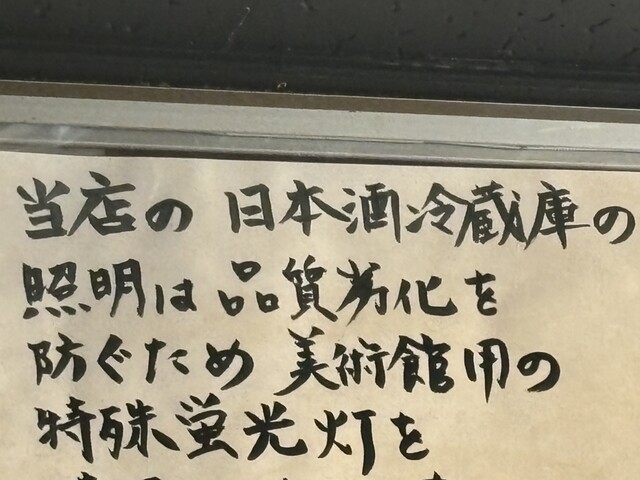 当店の日本酒冷蔵庫の
照明は品質劣化を
防ぐため美術館用の
特殊蛍光灯を